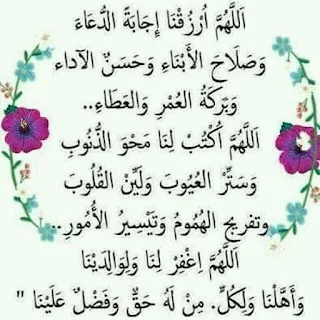 اَللَّهُمَّ اُرْزُقْنَا إِجَابَةً الدُّعَاءَ
وَصَلَاحَ الأَبْنَاءِ وَحَسَنٌ الآداء
وَبَرَكَةُ العُمْرِ وَالعَطَاءِ..
اَللَّهُمَّ اُكْتُبْ لِنَا مَحْوَ الذُّنُوبِ
وَسَتِّرْ العُيُوبَ وَلَيِّنْ القُلُوبَ
وتفريح الهُمُومُ وَتَيْسِيرُ الأُمُورِ..
اَللَّهُمَّ اِغْفِرْ لِنَا وَلِوَالِدَيْنَا
وَأَهْلَنْا وَلِكُلٍّ. مِنْ لَهُ حَقٌّ وَفَضْلٌ عَلَيْنَا "